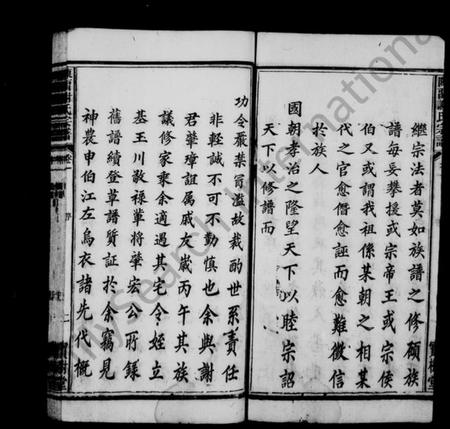 繼宗法者莫如族譜之修顧族
譜每妄攀援或宗帝王或宗侯
伯又或謂我祖係某朝之相某
代之官愈僭愈誣而愈難徵信
於族人
國朝孝治之隆望天下以睦宗詔
天下以修譜而
功令嚴禁冒濫故裁酌世系責任
非輕誠不可不勤慎也余與謝
君華璋誼屬戚友歲丙午其族
議修家乘余適過其宅令姪立
基王川敬祿輩將肇宏公所錄
舊譜續登草譜質証於余竊見
神農申伯江左烏衣諸先代概
MySearch International